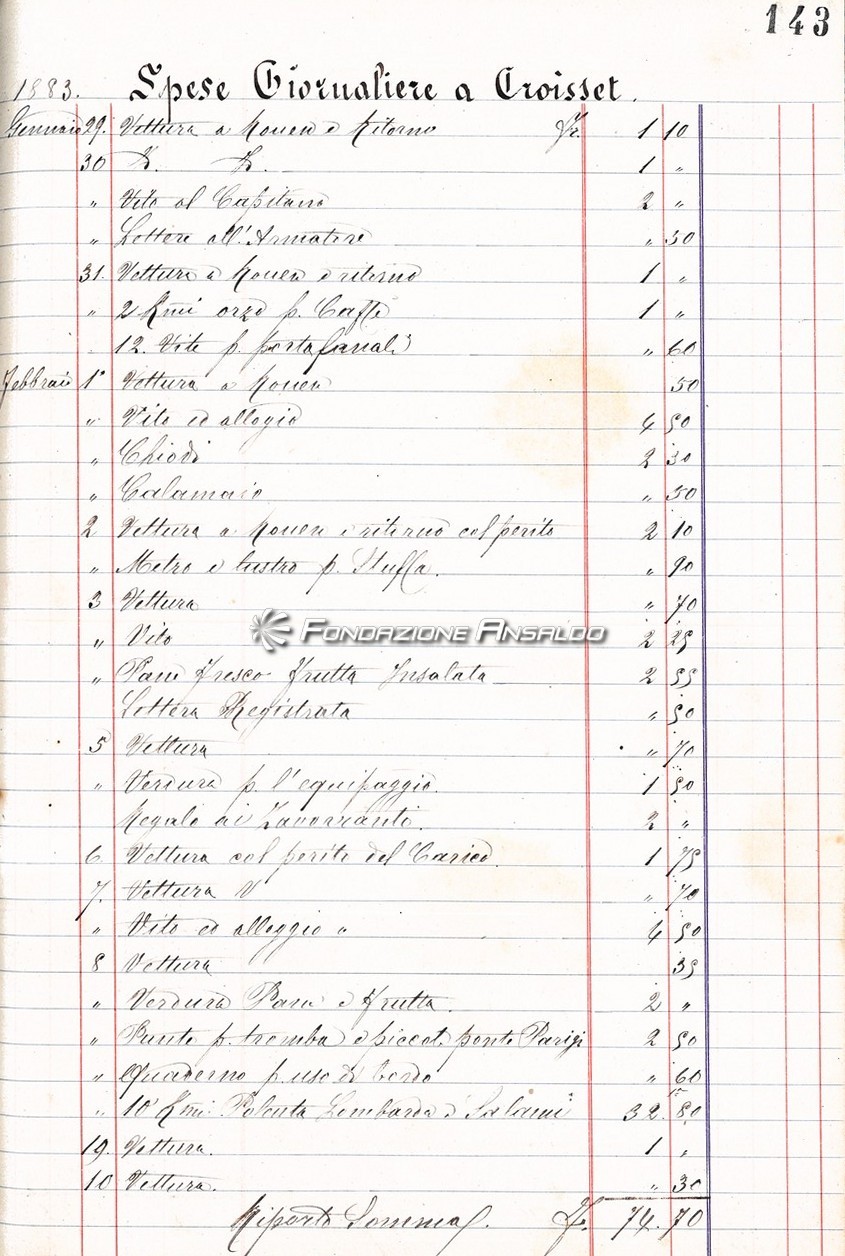 143
1883. Spese Giornaliere a Croisset.
Gennaio 29. Vettura a Rouen e Ritorno Fr. 1 10
30 D. D. 1 "
" Vito al Capitano 2 "
" Lettere all'Armatore " 50
31. Vettura a Rouen e ritorno 1 "
" 2 Kmi orzo p. Caffè 1 "
12. Vite p. portafanali " 60
Febbraio 1° Vettura a Rouen 50
" Vito ed allogio 4 50
" Chiodi 2 30
" Calamaio " 50
2 Vettura a Rouen e ritorno col perito 2 10
" Metro e lustro p. Stuffa. " 90
3 Vettura " 70
" Vito 2 25
FONDAZIONE ANSALDO
" Pane Fresco Frutta Insalata 2 55
Lettera Registrata " 50
5 Vettura " 70
" Verdura p. l'equipaggio. 1 50
Regalo ai Zavorranti. 2 "
6 Vettura col perito del Carico. 1 75
7. Vettura " 70
" Vito ed alloggio " 4 50
8 Vettura 35
" Verdura Pane e Frutta. 2 "
" Punte p. tromba e ponte Parigi 2 50
" Quaderno p. uso di bordo " 60
" 10 Kmi Polenta Lombarda e Salami 32. 80
19. Vettura. 1 "
10 Vettura. " 30
Riporto Somma Fr. 74. 70